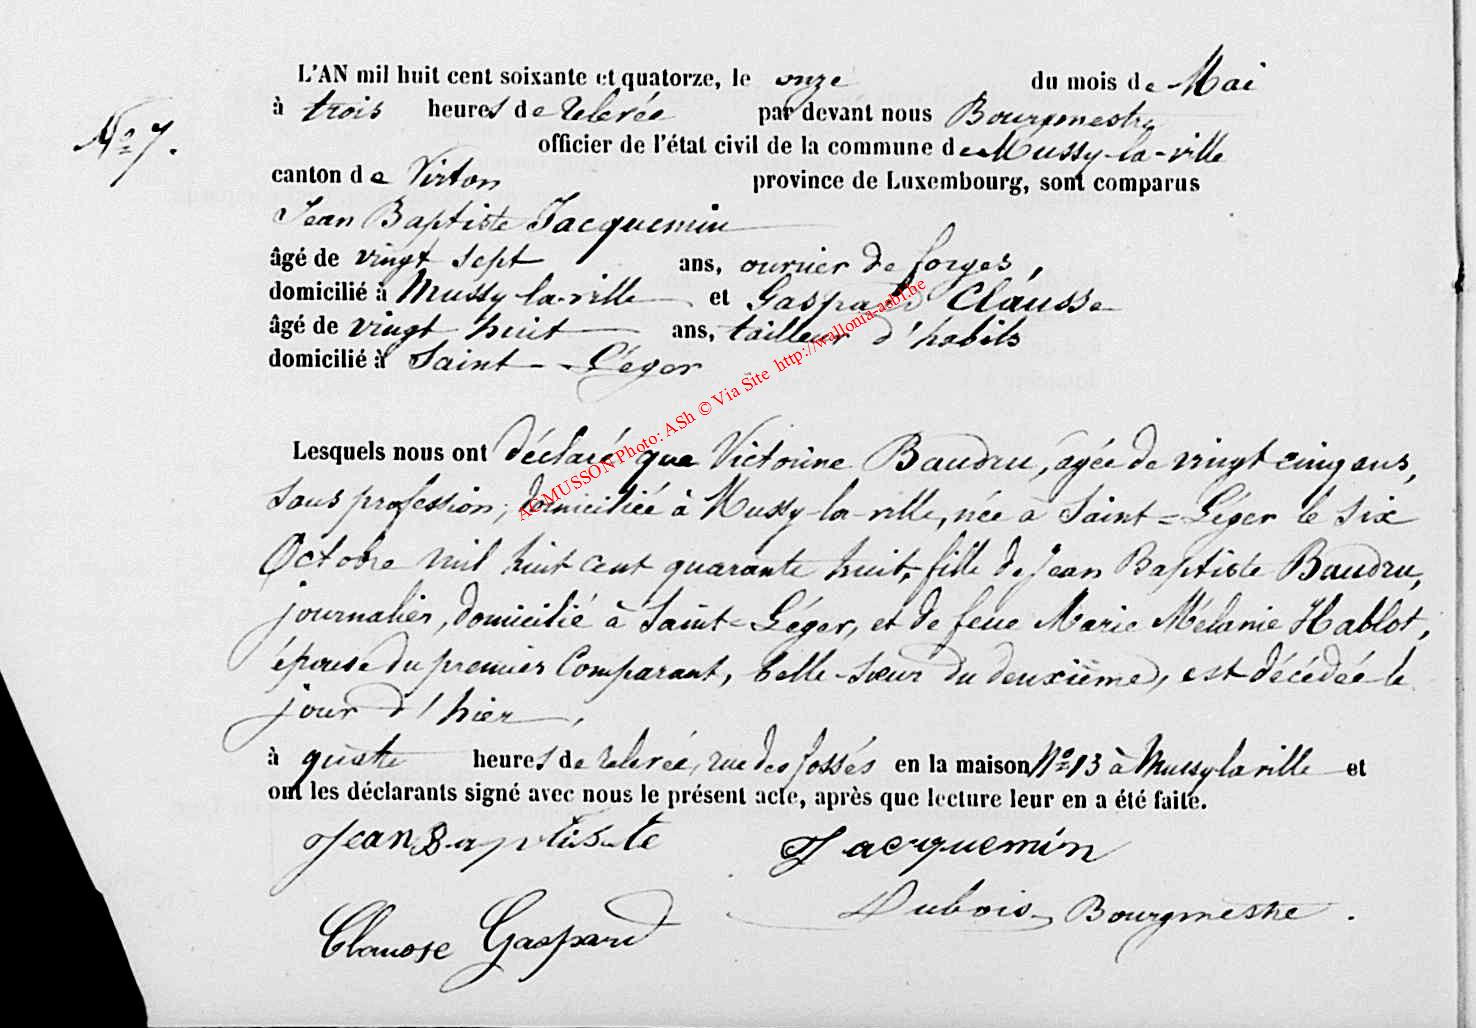 L'AN mil huit cent soixante et quatorze, le onze du mois de Mai
à trois heures de relevée par devant nous Bourgmestre
officier de l'état civil de la commune de Mussy-la-ville
No 7.
canton de Virton province de Luxembourg, sont comparus
Jean Baptiste Jacquemin
âgé de vingt sept ans, ouvrier de forges,
domicilié à Mussy-la-ville et Gaspard Clausse
âgé de vingt huit ans, tailleur d'habits
domicilié à Saint-Léger
AC MUSSON Photo: ASh © Via Site http://wallonia-asbl.be
Lesquels nous ont déclaré que Victorine Baudru, agée de vingt cinq ans,
sans profession, domiciliée à Mussy-la-ville, née à Saint=Léger le six
Octobre mil huit cent quarante huit, fille de Jean Baptiste Baudru,
journalier, domicilié à Saint=Léger, et de feue Marie Mélanie Hablot,
épouse du premier Comparant, belle-sœur du deuxième, est décédée le
jour d'hier,
à quatre heures de relevée, rue des fossés en la maison No 13 à Mussy la ville et
ont les déclarants signé avec nous le présent acte, après que lecture leur en a été faite.
Jean Baptiste Jacquemin
Dubois Bourgmestre.
Clausse Gaspard